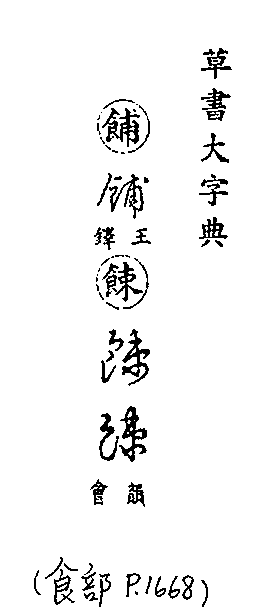 草書大字典
餔
餔
王鐸
餗
餗
餗
韻會
(食部 P.1668)